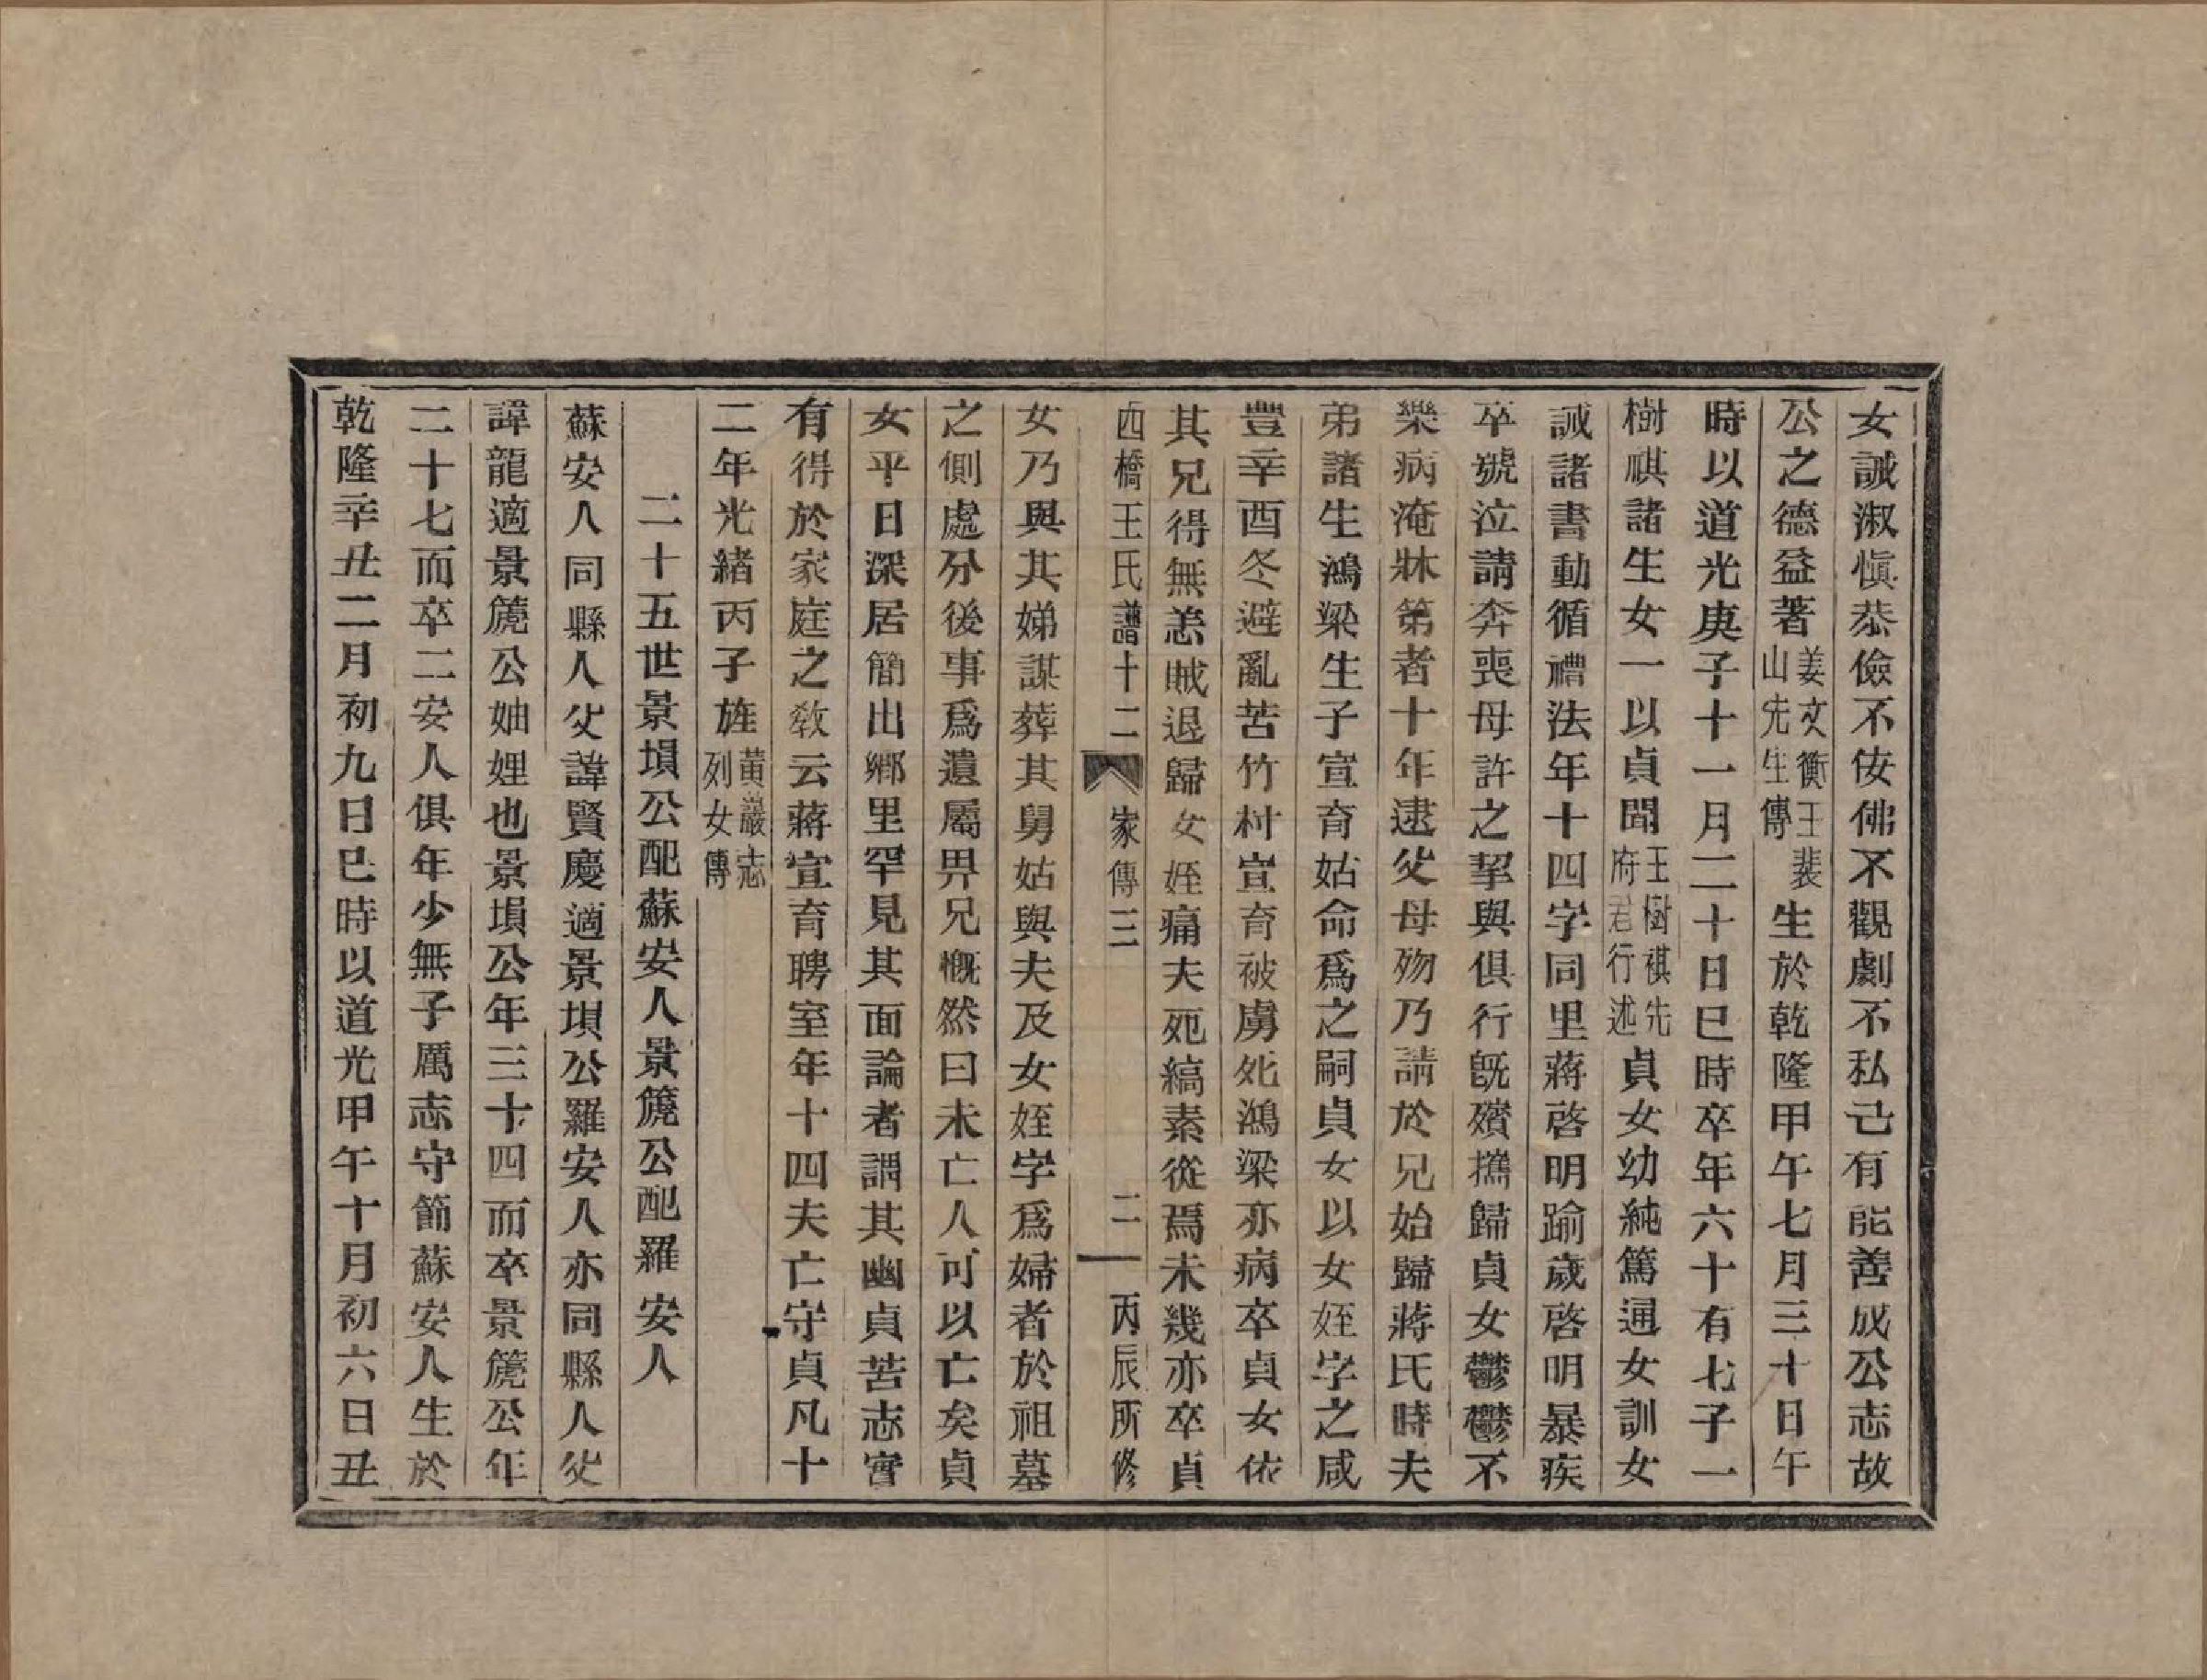 女誡淑愼恭儉不佞佛不觀劇不私己有能善成公志故
公之德益著姜文衡王裴山先生傳生於乾隆甲午七月三十日午
時以道光庚子十一月二十日巳時卒年六十有七子一
樹祺諸生女一以貞聞王樹祺先府君行述貞女幼純篤通女訓女
誡諸書動循禮法年十四字同里蔣啓明踰歲啓明暴疾
卒號泣請奔喪母許之挈與俱行旣殯攜歸貞女鬱鬱不
樂病淹牀第者十年逮父母歿乃請於兄始歸蔣氏時夫
弟諸生鴻梁生子宣育姑命爲之嗣貞女以女姪字之咸
豐辛酉冬避亂苦竹村宣育被虜死鴻梁亦病卒貞女依
其兄得無恙賊退歸女姪痛夫死縞素從焉未幾亦卒貞
西橋王氏譜十二 家傳三 二 丙辰所修
女乃與其娣謀葬其舅姑與夫及女姪字爲婦者於祖墓
之側處分後事爲遺屬畀兄慨然曰未亡人可以亡矣貞
女平日深居簡出鄉里罕見其面論者謂其幽貞苦志實
有得於家庭之敎云蔣宣育聘室年十四夫亡守貞凡十
二年光緒丙子旌黃巖志列女傳
二十五世景塤公配蘇安人景篪公配羅安人
蘇安人同縣人父諱賢慶適景塤公羅安人亦同縣人父
諱龍適景篪公妯娌也景塤公年三十四而卒景篪公年
二十七而卒二安人俱年少無子厲志守節蘇安人生於
乾隆辛丑二月初九日巳時以道光甲午十月初六日丑